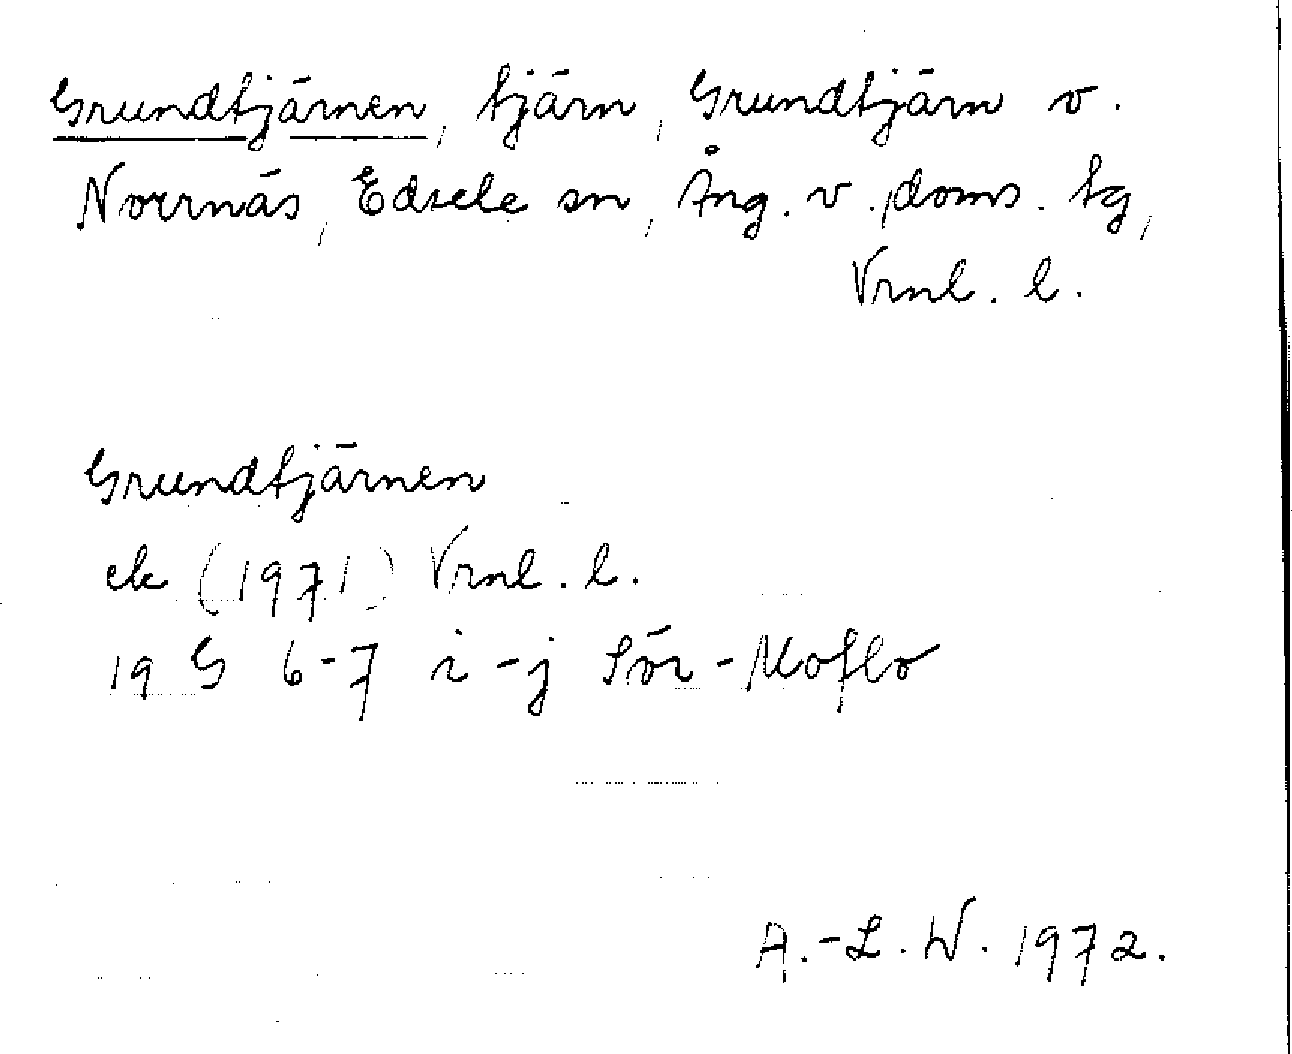 Grundtjärnen, tjärn, Grundtjärn v.
Norrnäs, Edsele sn, Ång. v. doms. tg,
Vrnl. l.
Grundtjärnen
ek (1971) Vrnl. l.
19 G 6-7 i-j Sör-Moflo
A.-L. W. 1972.